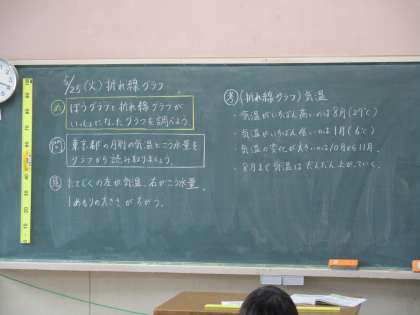 5/25(火)折れ線グラフ
め ぼうグラフと折れ線グラフが
いっしょになったグラフを調べよう。
問 東京都の月別の気温とこう水量を
グラフから読み取りましょう。
見 たてじくの左が気温、右がこう水量。
1めもりの大きさがちがう。
考 (折れ線グラフ) 気温
・気温がいちばん高いのは8月(27℃)
・気温がいちばん低いのは1月(6℃)
・気温の変化が大きいのは10月から11月。
・8月まで気温はだんだん上がっていく。